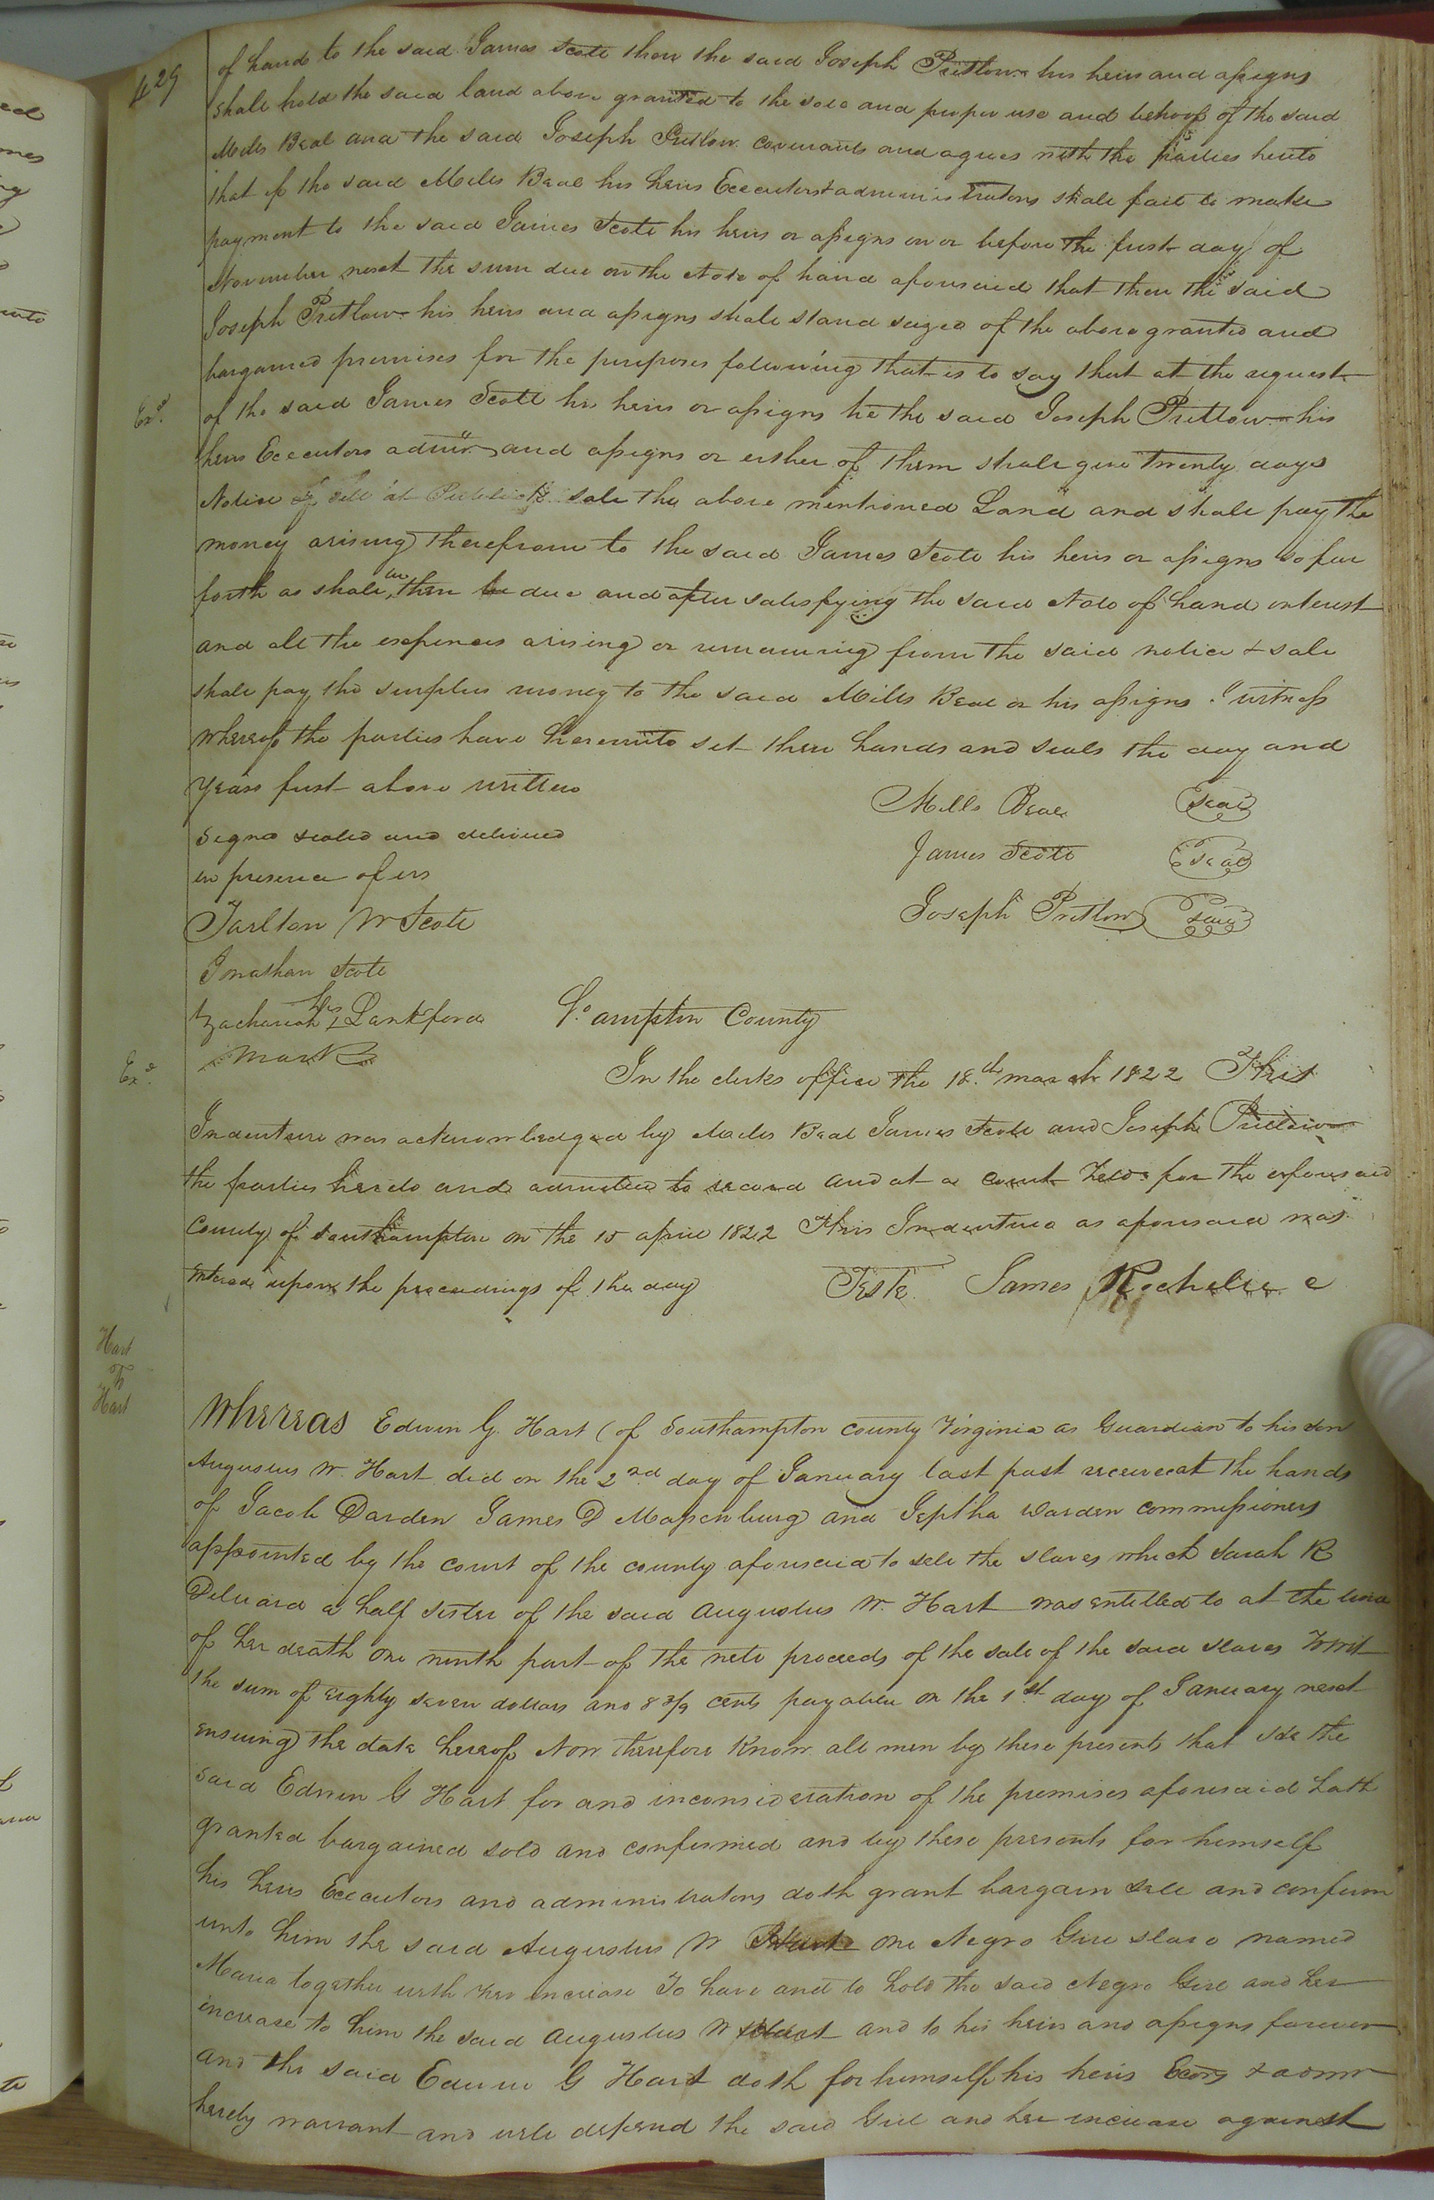 429
of hand to the said James Scott then the said Joseph Pretlow his heirs and assigns
shall hold the said land above granted to the sole and proper use and behoof of the said
Mills Beal and the said Joseph Pretlow covenants and agrees with the parties hereto
that if the said Mills Beal his heirs Executors & administrators shall fail to make
payment to the said James Scott his heirs or assigns on or before the first day of
November next the sum due on the Note of hand aforesaid that then the said
Joseph Pretlow his heirs and assigns shall stand seized of the above granted and
bargained premises for the purposes following that is to say that at the request
of the said James Scott his heirs or assigns he the said Joseph Pretlow his
heirs Executors admr. and assigns or either of them shall give twenty days
Notice & sell at Publick sale the above mentioned Land and shall pay the
money arising therefrom to the said James Scott his heirs or assigns so far
forth as shall be then be due and after satisfying the said Note of hand interest
and all the expences arising or remaining from the said notice & sale
shall pay the surplus money to the said Mills Beal or his assigns. I witness
whereof the parties have hereunto set there hands and seals the day and
years first above written
Mills Beal seal
Signd sealed and delivered
James Scott seal
in presence of us
Joseph Pretlow seal
Tarlton W Scott
Jonathan Scott
his
Zachariah Lankford
mark
Sº ampton County
Exd.
In the clerks office the 18.th march 1822 This
Indenture was acknowledged by Mills Beal James Scott and Joseph Pretlow
the parties hereto and admitted to record and at a court held for the aforesaid
County of Southampton on the 15 april 1822 This Indenture as aforesaid was
entered upon the proceedings of the day
Teste James Rochelle c
Hart
To
Hart
Whereas Edwin G. Hart (of Southampton county Virginia as Guardian to his son
Augustus W. Hart did on the 2nd day of January last past receive at the hands
of Jacob Darden James D Massenburg and Jeptha Darden commissioners
appointed by the court of the county aforesaid to sell the slaves which Sarah R
a half sister of the said Augustus W. Hart was entitled to at the time
of her death one ninth part of the nett proceeds of the sale of the said slaves Towit
the sum of eighty seven dollars and cents payable on the 1st day of January next
ensuing the date hereof Now therefore Know all men by these presents that the
said Edwin G Hart for and inconsideration of the premises aforesaid hath
granted bargained sold and confirmed and by these presents for himself
his heirs Executors and administrators doth grant bargain sell and confirm
unto him the said Augustus W Hart one Negro Girl slave named
Maria together with her increase To have and to hold the said Negro Girl and her
increase to him the said Augustus W Hart and to his heirs and assigns forever
and the said Edwin G Hart doth for himself his heirs Exors & admr
hereby warrant and will defend the said Girl and her increase against